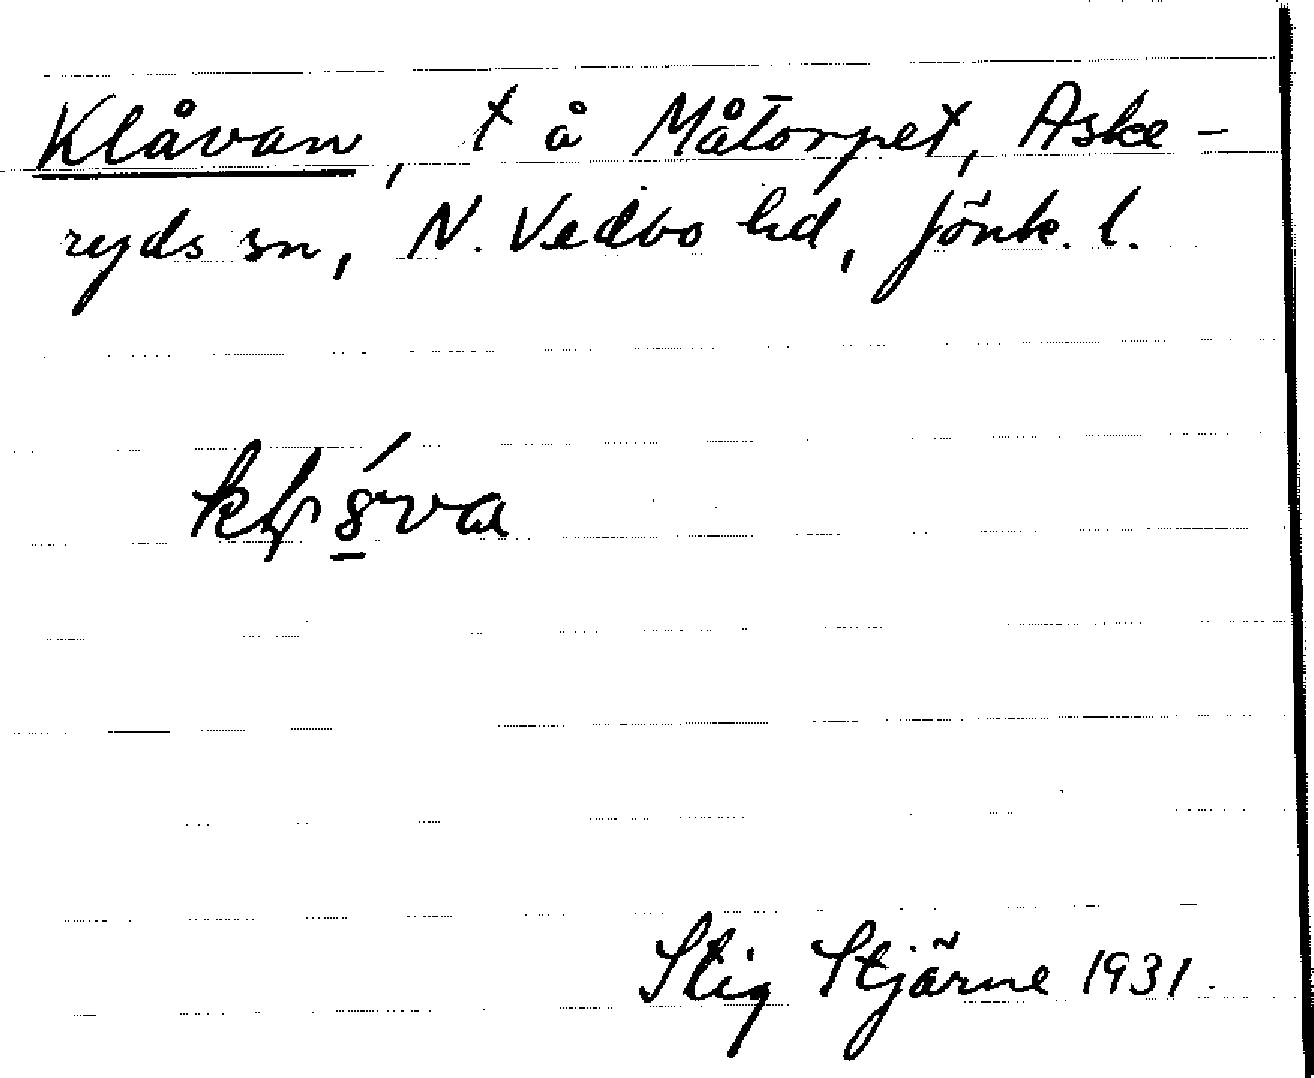 Klåvan, t å Måtorpet, Aske-
ryds sn, N. Vedbo hd, Jönk. l.
Stig Stjärne 1931.